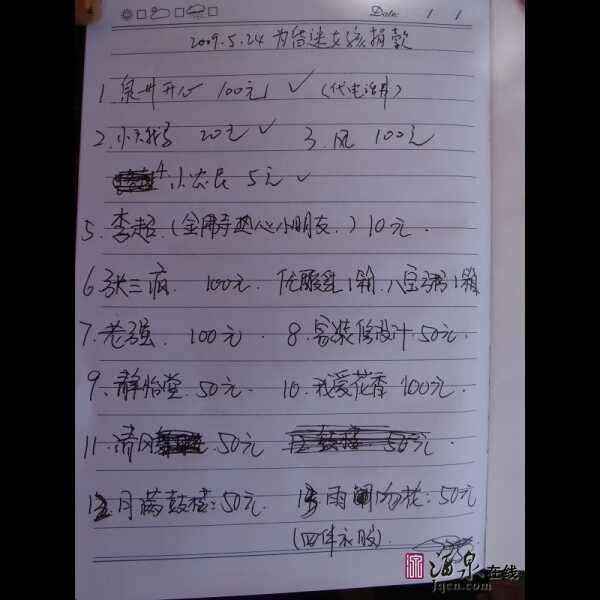 Date: / /
2009.5.24 为昏迷女孩捐款
1. 泉州开心 100元 ✓ (代电话本)
2. 小天鹅 20元 ✓ 3. 风 100元
4. 小农民 5元 ✓
5. 李超 (金屏寺热心小朋友.) 10元.
6 张三疯. 100元. 优酸乳1箱. 八宝粥1箱
7. 老强. 100元. 8. 容装修设计. 50元.
9. 静怡堂. 50元. 10. 我爱花香 100元.
11. 清风 50元 12 鼓楼. 50元.
12 月满鼓楼: 50元. 13 雨 花: 50元
(四件衣服).
温泉在线
jqcn.com